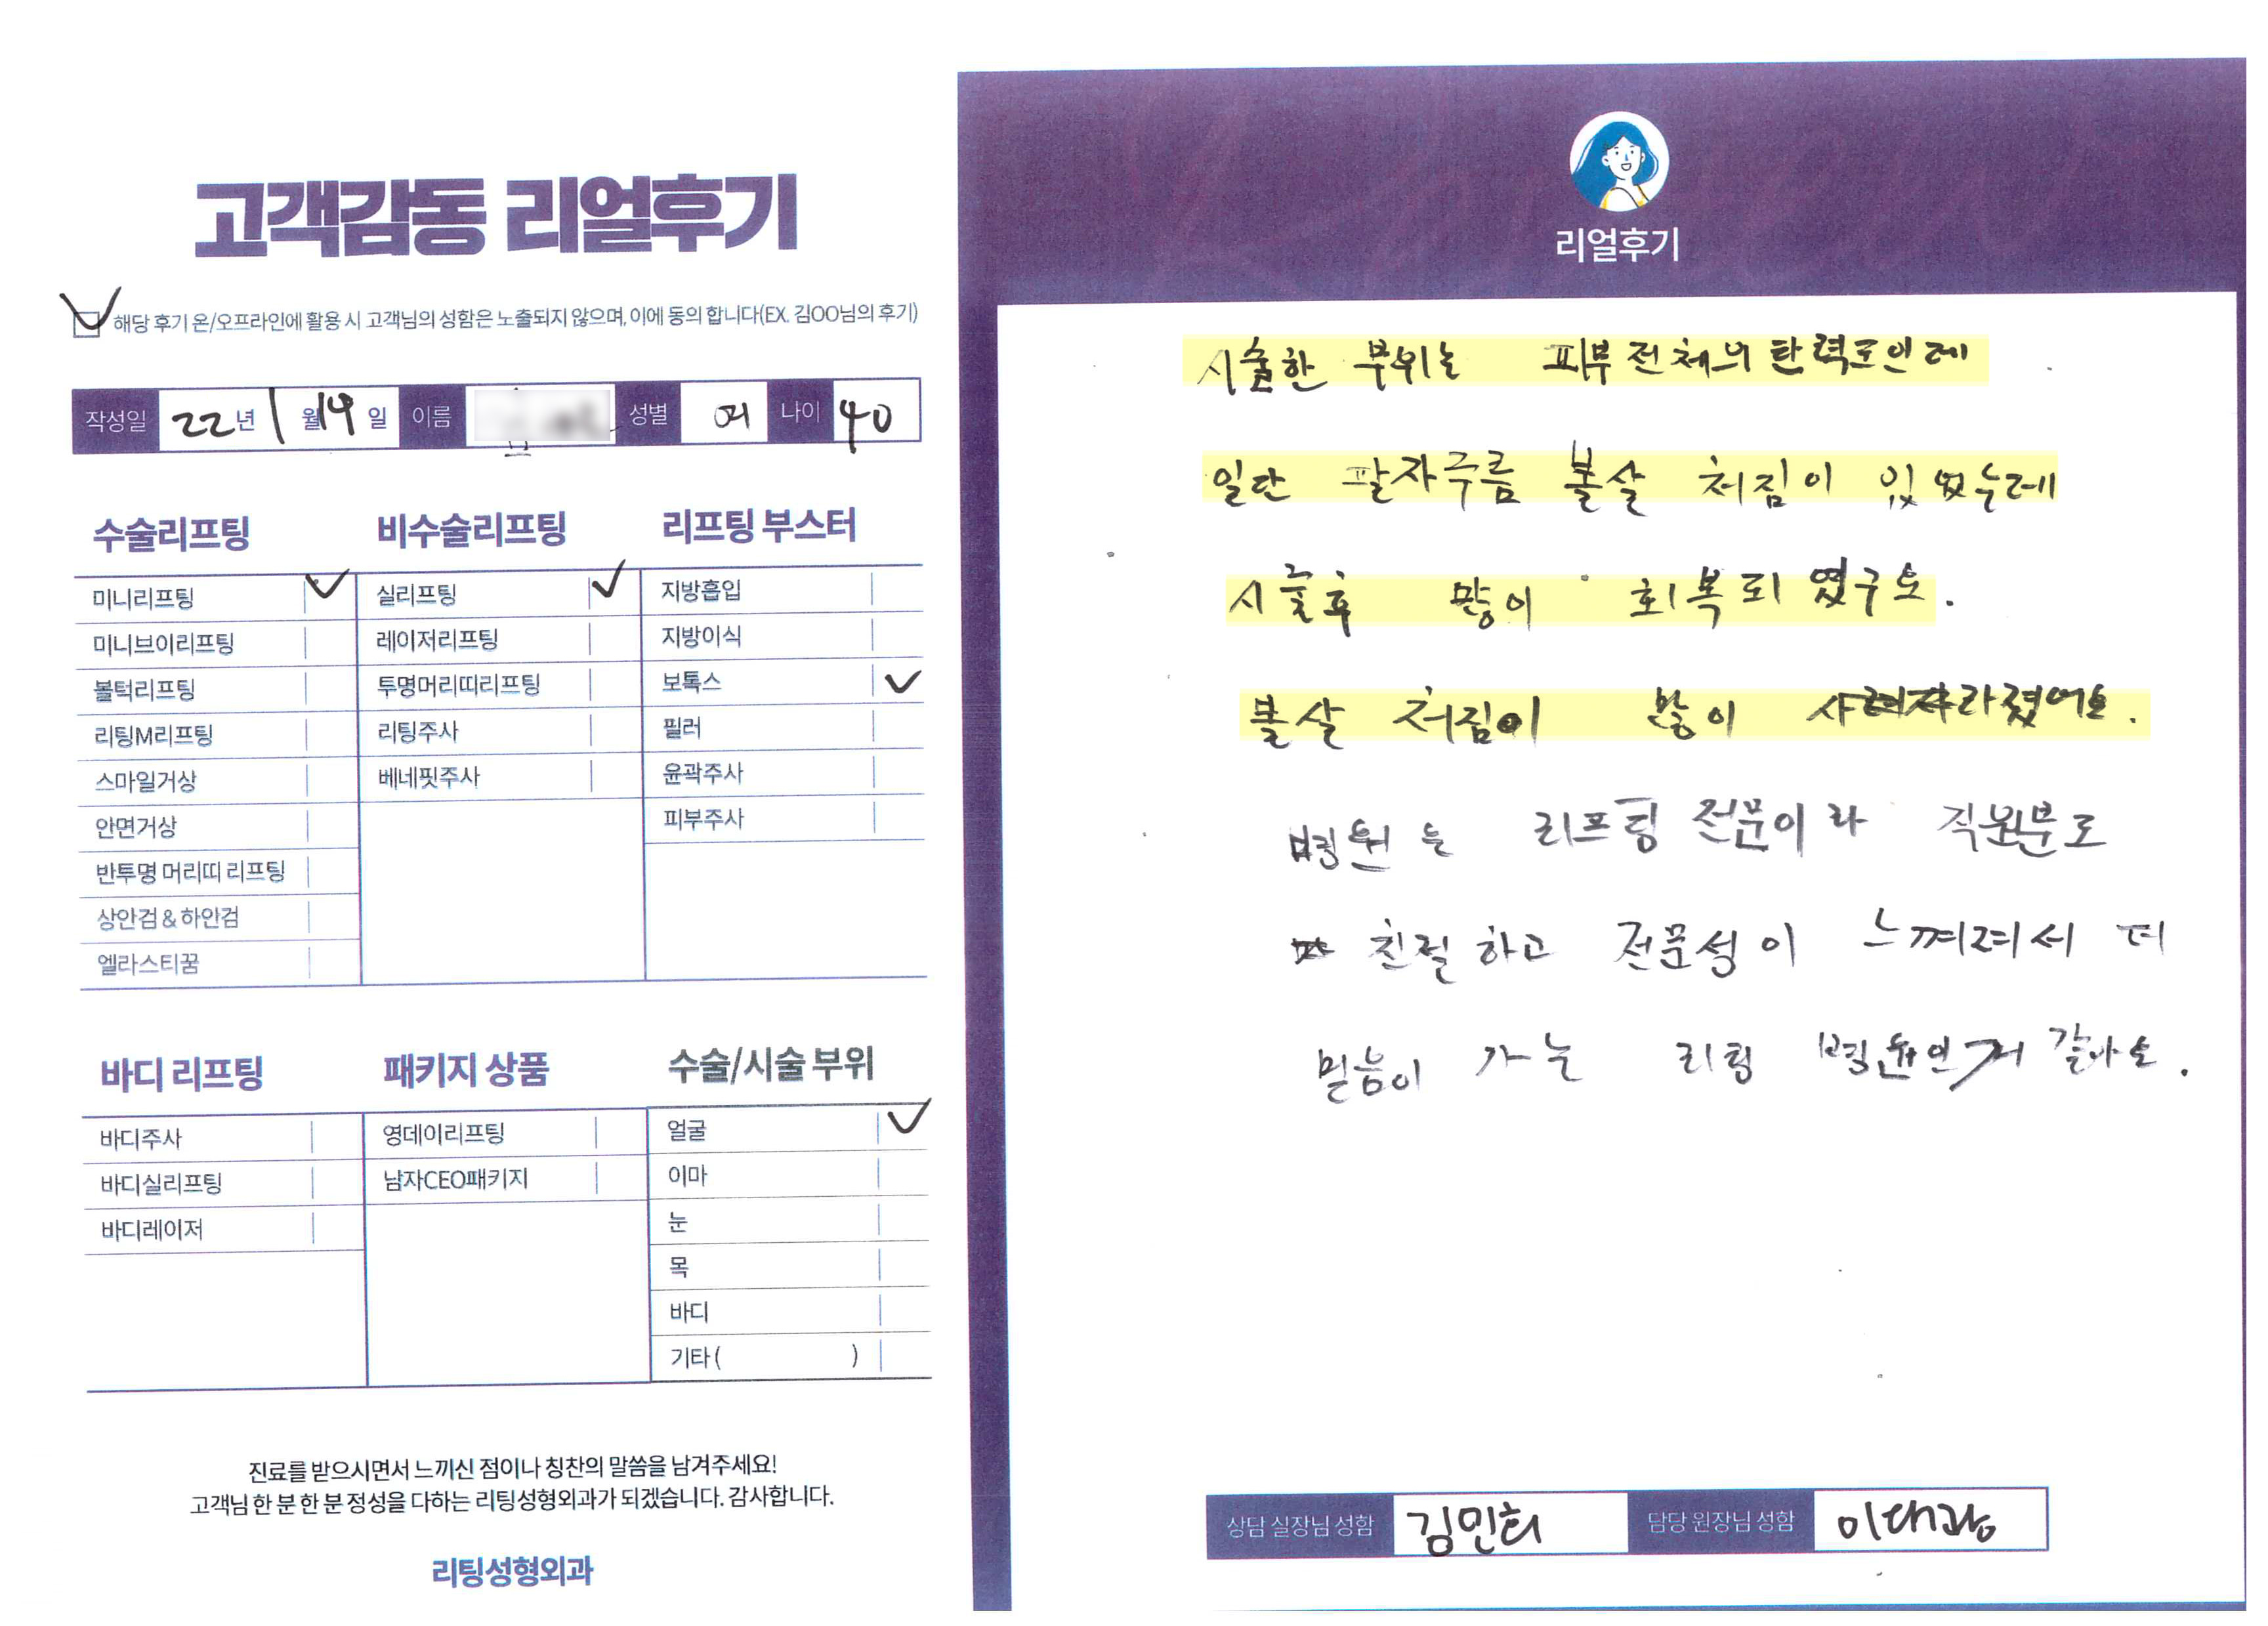 고객감동 리얼후기
해당 후기 온/오프라인에 활용 시 고객님의 성함은 노출되지 않으며, 이에 동의 합니다(EX. 김OO님의 후기)
작성일 22년 1월 19일 이름 성별 여 나이 40
수술리프팅
미니리프팅
미니브이리프팅
볼턱리프팅
리팅M리프팅
스마일거상
안면거상
반투명 머리띠 리프팅
상안검 & 하안검
엘라스티꿈
비수술리프팅
실리프팅
레이저리프팅
투명머리띠리프팅
리팅주사
베네핏주사
리프팅 부스터
지방흡입
지방이식
보톡스
필러
윤곽주사
피부주사
바디 리프팅
바디주사
바디실리프팅
바디레이저
패키지 상품
영데이리프팅
남자CEO패키지
수술/시술 부위
얼굴
이마
눈
목
바디
기타 ( )
진료를 받으시면서 느끼신 점이나 칭찬의 말씀을 남겨주세요!
고객님 한 분 한 분 정성을 다하는 리팅성형외과가 되겠습니다. 감사합니다.
리팅성형외과
리얼후기
시술한 부위는 피부전체의 탄력도인데
일단 팔자주름 볼살 처짐이 있었는데
시술후 많이 회복되였구요.
볼살 처짐이 많이 사라졌어요.
병원는 리프팅 전문이라 직원분도
친절하고 전문성이 느껴려서 더
믿음이 가는 리팅 병원인거 같아요.
상담 실장님 성함 김민희 담당 원장님 성함 이대광